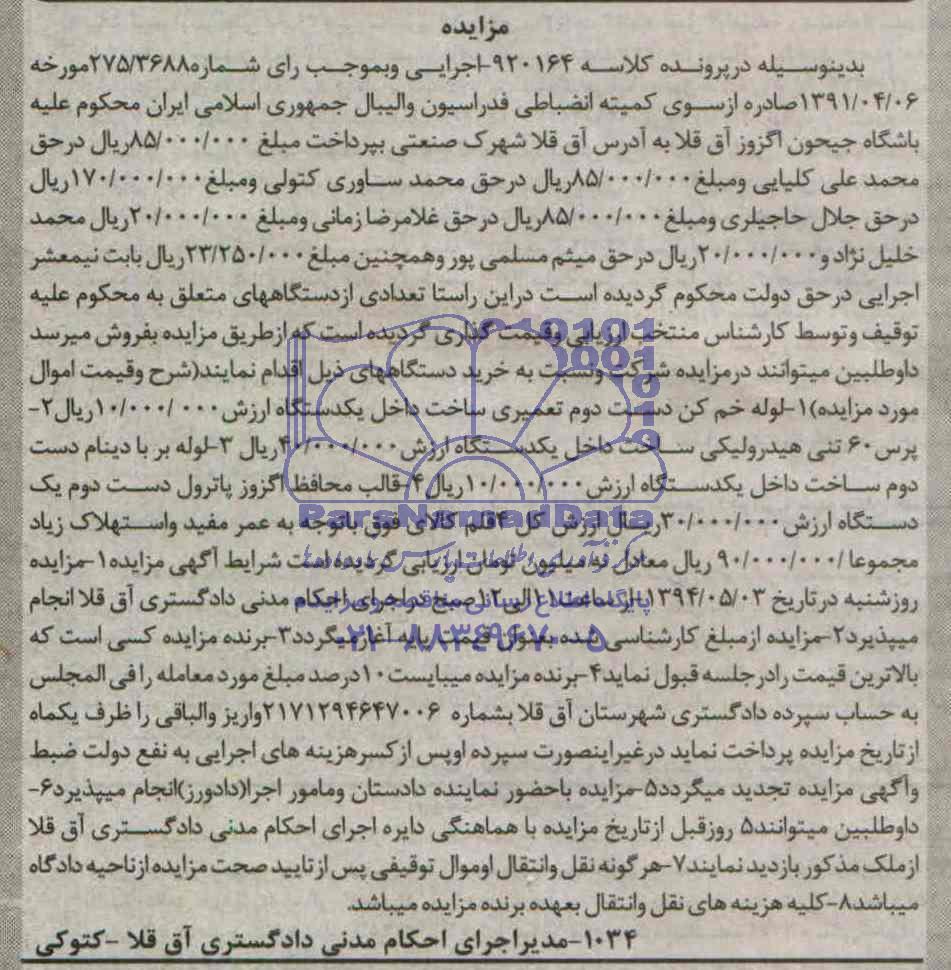 مزایده
بدینوسیله درپرونده کلاسه ۹۲۰۱۶۴-اجرایی وبموجب رای شماره۲۷۵/۳۶۸۸مورخه
۱۳۹۱/۰۴/۰۶صادره ازسوی کمیته انضباطی فدراسیون والیبال جمهوری اسلامی ایران محکوم علیه
باشگاه جیحون اگزوز آق قلا به آدرس آق قلا شهرک صنعتی بپرداخت مبلغ ۸۵/۰۰۰/۰۰۰ریال درحق
محمد علی کلیایی ومبلغ۸۵/۰۰۰/۰۰۰ریال درحق محمد ساوری کتولی ومبلغ۱۷۰/۰۰۰/۰۰۰ریال
درحق جلال حاجیلری ومبلغ۸۵/۰۰۰/۰۰۰ریال درحق غلامرضا زمانی ومبلغ ۲۰/۰۰۰/۰۰۰ریال محمد
خلیل نژاد و۲۰/۰۰۰/۰۰۰ریال درحق میثم مسلمی پور وهمچنین مبلغ۲۳/۲۵۰/۰۰۰ریال بابت نیمعشر
اجرایی درحق دولت محکوم گردیده است دراین راستا تعدادی ازدستگاههای متعلق به محکوم علیه
توقیف وتوسط کارشناس منتخب ارزیابی وقیمت گذاری گردیده است که ازطریق مزایده بفروش میرسد
داوطلبین میتوانند درمزایده شرکت ونسبت به خرید دستگاههای ذیل اقدام نمایند(شرح وقیمت اموال
مورد مزایده)۱-لوله خم کن دست دوم تعمیری ساخت داخل یکدستگاه ارزش۱۰/۰۰۰/۰۰۰ریال۲-
پرس۶۰ تنی هیدرولیکی ساخت داخل یکدستگاه ارزش۴۰/۰۰۰/۰۰۰ریال ۳-لوله بر با دینام دست
دوم ساخت داخل یکدستگاه ارزش۱۰/۰۰۰/۰۰۰ریال۴-قالب محافظ اگزوز پاترول دست دوم یک
دستگاه ارزش ۳۰/۰۰۰/۰۰۰ریال ارزش کل ۴قلم کالای فوق باتوجه به عمر مفید واستهلاک زیاد
مجموعا ۹۰/۰۰۰/۰۰۰/ ریال معادل نه میلیون تومان ارزیابی گردیده است شرایط آگهی مزایده۱-مزایده
روزشنبه درتاریخ ۱۳۹۴/۰۵/۰۳ ازساعت۱۱الی۱۲صبح دراجرای احکام مدنی دادگستری آق قلا انجام
میپذیرد۲-مزایده ازمبلغ کارشناسی شده بعنوان قیمت پایه آغازمیگردد۳-برنده مزایده کسی است که
بالاترین قیمت رادرجلسه قبول نماید۴-برنده مزایده میبایست۱۰درصد مبلغ مورد معامله رافی المجلس
به حساب سپرده دادگستری شهرستان آق قلا بشماره ۲۱۷۱۲۹۴۶۴۷۰۰۶واریز والباقی را ظرف یکماه
ازتاریخ مزایده پرداخت نماید درغیراینصورت سپرده اوپس ازکسرهزینه های اجرایی به نفع دولت ضبط
وآگهی مزایده تجدید میگردد۵-مزایده باحضور نماینده دادستان ومامور اجرا(دادورز)انجام میپذیرد۶-
داوطلبین میتوانند۵ روزقبل ازتاریخ مزایده با هماهنگی دایره اجرای احکام مدنی دادگستری آق قلا
ازملک مذکور بازدید نمایند۷-هرگونه نقل وانتقال اوموال توقیفی پس ازتایید صحت مزایده ازناحیه دادگاه
میباشد۸-کلیه هزینه های نقل وانتقال بعهده برنده مزایده میباشد.
۱۰۳۴-مدیراجرای احکام مدنی دادگستری آق قلا -کتوکی
ParsNamadData
پایگاه اطلاع رسانی مناقصه و مزایده
۰۲۱-۸۸۳۴۹۶۷۰-۵